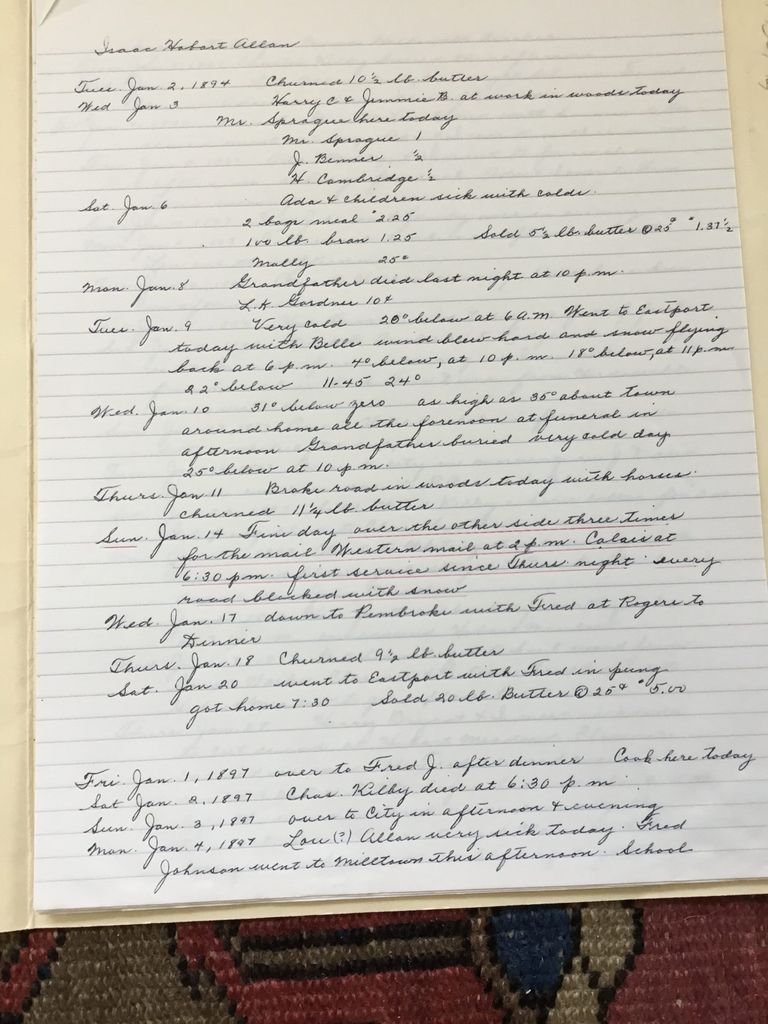 Isaac Hobart Allan
Tues. Jan. 2, 1894 Churned 10 1/2 lb. butter
Wed Jan 3 Harry C & Jimmie B. at work in woods today
Mr. Sprague here today
Mr. Sprague 1
J. Benner 1/2
H. Cambridge 1/2
Sat. Jan. 6 Ada & children sick with colds.
2 bags meal $2.25
100 lb. bran 1.25 Sold 5 1/2 lb. butter @ 25¢ $1.37 1/2
Molly 25¢
Mon. Jan. 8 Grandfather died last night at 10 p.m.
L.H. Gardner 10¢
Tues. Jan. 9 Very cold 20° below at 6 A.M. Went to Eastport
today with Belle wind blew hard and snow flying
back at 6 p.m. 4° below, at 10 p.m. 18° below, at 11 p.m
22° below 11-45 24°
Wed. Jan. 10 31° below zero as high as 35° about town
around home all the forenoon at funeral in
afternoon Grandfather buried very cold day
25° below at 10 p.m.
Thurs. Jan 11 Broke road in woods today with horses.
churned 11 1/4 lb butter
Sun. Jan. 14 Fine day over the other side three times
for the mail Western mail at 2 p.m. Calais at
6:30 p.m. first service since Thurs. night every
road blocked with snow
Wed. Jan. 17 down to Pembroke with Fred at Rogers to
Dinner
Thurs. Jan. 18 Churned 9 1/2 lb butter
Sat. Jan 20 went to Eastport with Fred in pung
got home 7:30 Sold 20 lb. Butter @ 25¢ $5.00
Fri. Jan. 1, 1897 over to Fred J. after dinner Cook here today
Sat Jan. 2, 1897 Chas. Kilby died at 6:30 p.m
Sun. Jan. 3, 1897 over to City in afternoon & evening
Mon. Jan. 4, 1897 Lou (?) Allan very sick today. Fred
Johnson went to Milltown this afternoon. School